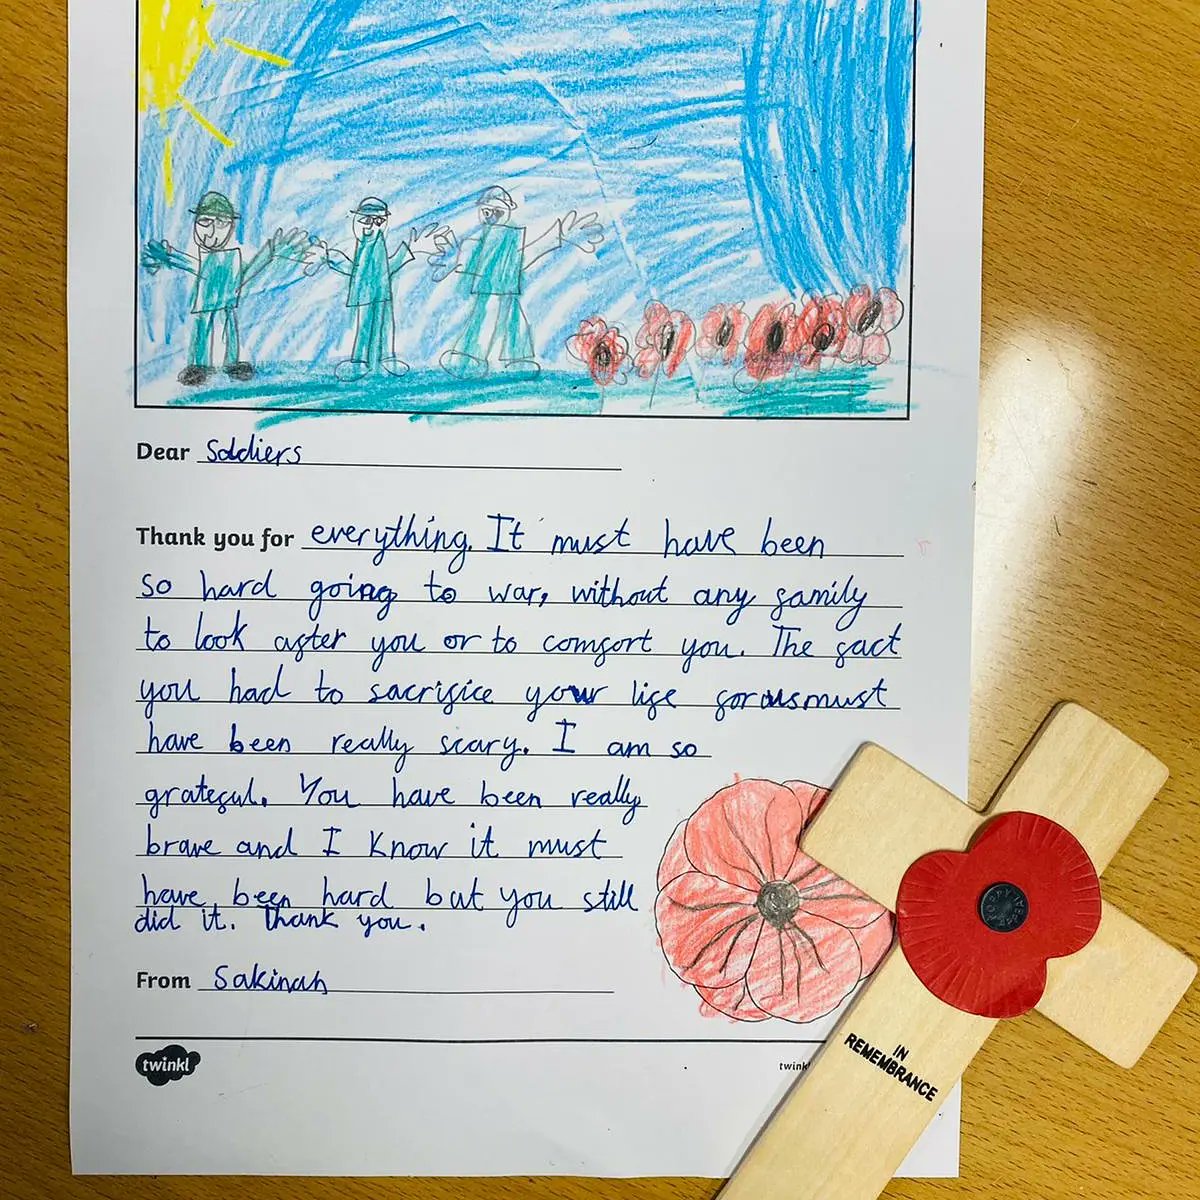 Dear Soldiers
Thank you for everything. It must have been
so hard going to war, without any family
to look after you or to comfort you. The fact
you had to sacrifice your life for us must
have been really scary. I am so
grateful. You have been really
brave and I know it must
have been hard but you still
did it. Thank you.
From Sakinah
twinkl
twinkl
IN
REMEMBRANCE
POPPY APPEAL